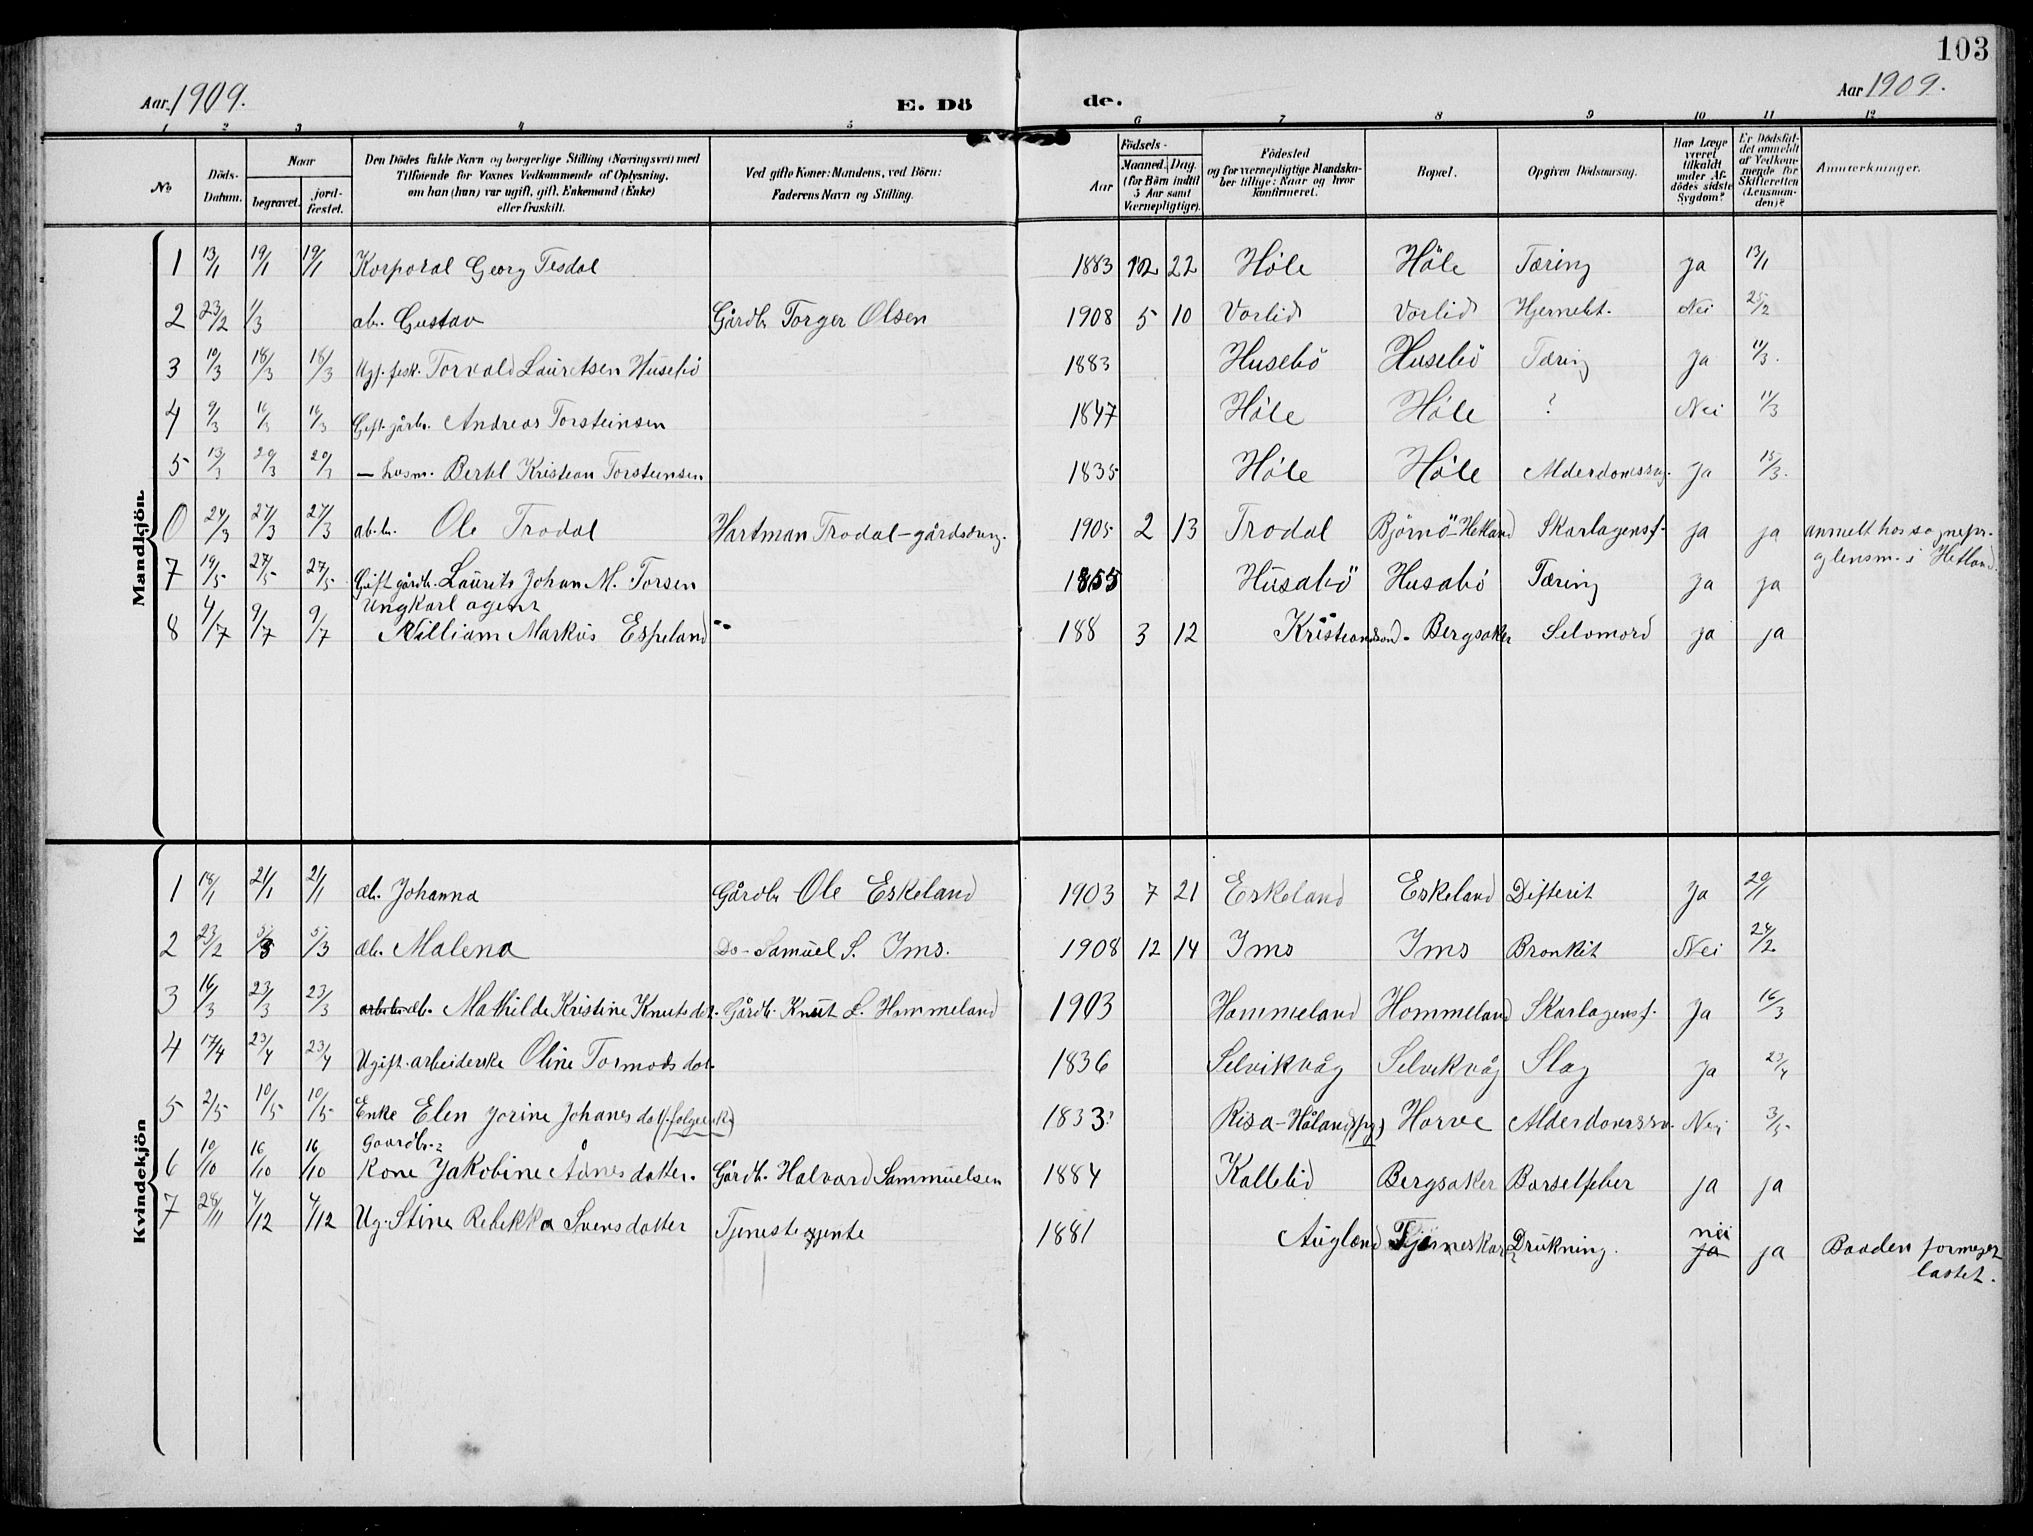 103
Aar 1909. E. Dö de. Aar 1909.
1 2 3 4 5 6 7 8 9 10 11 12
No
Döds-Datum.
Naar
begravet.
jord-fæstet.
Den Dödes fulde Navn og borgerlige Stilling (Næringsvei) med
Tilföiende for Voxnes Vedkommende af Oplysning,
om han (hun) var ugift, gift, Enkemand (Enke)
eller fraskilt.
Ved gifte Koner: Mandens, ved Börn:
Faderens Navn og Stilling.
Födsels-
Aar
Maaned. Dag.
(for Börn indtil
5 Aar samt
Værnepligtige).
Födested
og for værnepligtige Mandska-
ber tillige: Naar og hvor
konfirmeret.
Bopæl.
Opgiven Dödsaarsag.
Har Læge
været
tilkaldt
under Af-
dödes sidste
Sygdom?
Er Dödsfal-
det anmeldt
af Vedkom-
mende for
Skifteretten
(Lensman-
den)?
Anmærkninger.
Mandkjön.
1 13/1 19/1 19/1 Korporal Georg Tesdal 1883 12 22 Høle Høle Tæring ja 13/1
2 23/2 1/3 ab. Gustav Gårdb. Torger Olsen 1908 5 10 Vorlid Vorlid Hjernebt. Nei 25/2
3 10/3 18/3 18/3 Ugf. fisk. Torvald Lauretsen Husebö 1883 Husebö Husebö Tæring Ja 11/3.
4 9/3 16/3 16/3 Gift gårbr. Andreas Torsteinsen 1847 Høle Høle ? Nei 11/3
5 13/3 20/3 20/3 — husm. Bertel Kristian Torsteinsen 1835 Høle Høle Alderdomssvag. Ja 15/3.
6 24/3 27/3 27/3 ab.br. Ole Trodal Hartman Trodal - gårdsdreng. 1905 2 13 Trodal Björnö-Hetland Skarlagensf. ja ja anmelt hos sognepr.
og lensm. i Hetland
7 19/5 27/5 27/5 Gift gårdb. Laurits Johan M. Torsen 1855 Husabö Husabö Tæring ja ja
Ungkarl agent
8 4/7 9/7 9/7 William Markus Espeland 188 3 12 Kristiansand. Bergsaker Selvmord ja ja
Kvindekjön
1 18/1 21/1 21/1 ab. Johanna Gårdb. Ole Eskeland 1903 7 21 Eskeland Eskeland Difterit Ja 20/1
2 23/2 5/3 5/3 ab. Malena Do - Samuel S. Ims. 1908 12 14 Ims Ims Bronkit Nei 24/2
3 16/3 23/3 23/3 ab. Mathilde Kristine Knutsdot. Gårdb. Knut L. Hommeland 1903 Hommeland Hommeland Skarlagensf. Ja 16/3
4 17/4 23/4 23/4 Ugift arbeiderske Oline Tormodsdot. 1836 Selvikvåg Selvikvåg Slag ja 23/4
5 2/5 10/5 10/5 Enke Elen Jorine Johanesdot. 1833 Risa - Håland Horve Alderdomssv. Nei 3/5
Gaardbr.
6 10/10 16/10 16/10 Kone Jakobine Ådnesdatter. Gårdb. Halvard Sammuelsen 1884 Kallelid Bergsaker Barselfeber ja ja
7 28/11 4/12 4/12 Ug. Stine Rebekka Svensdatter Tjenestegjente 1881 Augland Drukning. nei ja ja Baaden formeget
lastet.